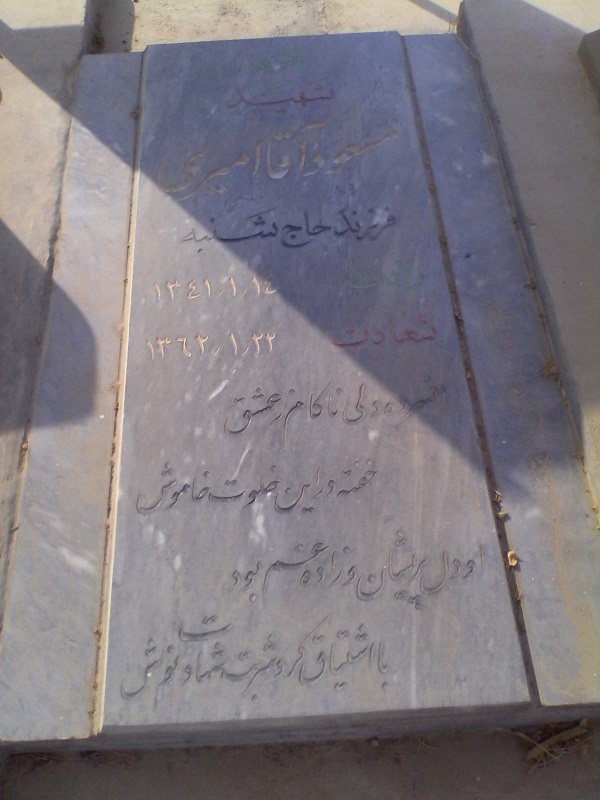 شهید
مسعود آقا امیری
فرزند حاج شنبه
ولادت ١٣٤١/١/١٤
شهادت ١٣٦٢/١/٢٢
افسرده دلی ناکام ز عشق
خفته در این خلوت خاموش
او دل پریشان و زاده غم بود
با اشتیاق کرد شربت شهادت نوش